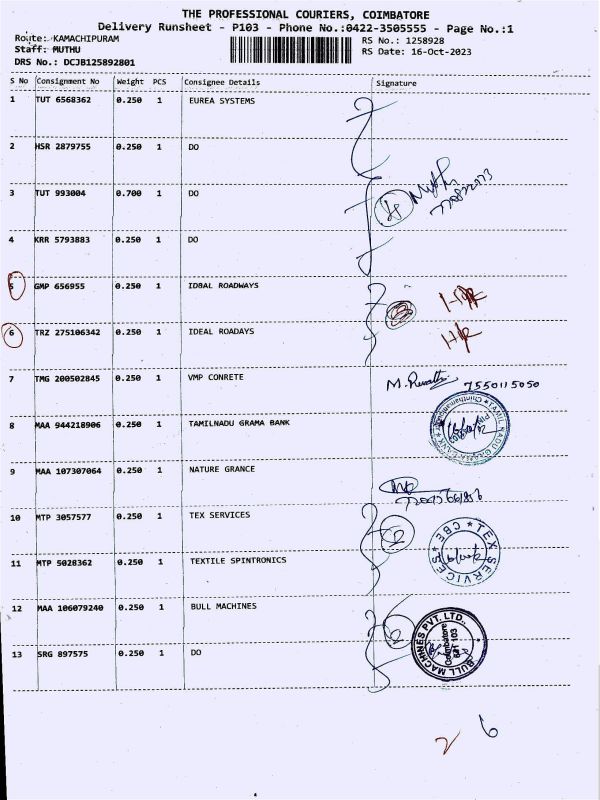 THE PROFESSIONAL COURIERS, COIMBATORE
Delivery Runsheet - P103 - Phone No.:0422-3505555 - Page No.:1
Route: KAMACHIPURAM
RS No.: 1258928
Staff: MUTHU
RS Date: 16-Oct-2023
DRS No.: DCJB125892801
S No Consignment No Weight PCS Consignee Details Signature
1 TUT 6568362 0.250 1 EUREA SYSTEMS
2 HSR 2879755 0.250 1 DO
3 TUT 993004 0.700 1 DO
4 KRR 5793883 0.250 1 DO
5 GMP 656955 0.250 1 IDBAL ROADWAYS
6 TRZ 275106342 0.250 1 IDEAL ROADAYS
7 TMG 200502845 0.250 1 VMP CONRETE
7550115050
8 MAA 944218906 0.250 1 TAMILNADU GRAMA BANK
TAMIL NADU GRAMA BANK
9 MAA 107307064 0.250 1 NATURE GRANCE
10 MTP 3057577 0.250 1 TEX SERVICES
2
TEX SERVICES CBE
11 MTP 5028362 0.250 1 TEXTILE SPINTRONICS
12 MAA 106079240 0.250 1 BULL MACHINES
2
BULL MACHINES PVT. LTD.,
Coimbatore
641 103
13 SRG 897575 0.250 1 DO
2 6